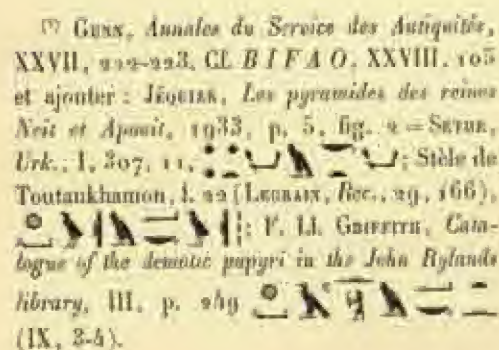 (1) GUNN, Annales du Service des Antiquités,
XXVII, 222-223. Cf. BIFAO, XXVIII, 105
et ajouter : JÉQUIER, Les pyramides des reines
Neit et Apouit, 1933, p. 5, fig. 2 = SETHE,
Urk., I, 307, 11, ; Stèle de
Toutankhamon, l. 22 (LEGRAIN, Rec., 29, 166),
: F. Ll. GRIFFITH, Cata-
logue of the demotic papyri in the John Rylands
library, III, p. 249
(IX, 3-4).